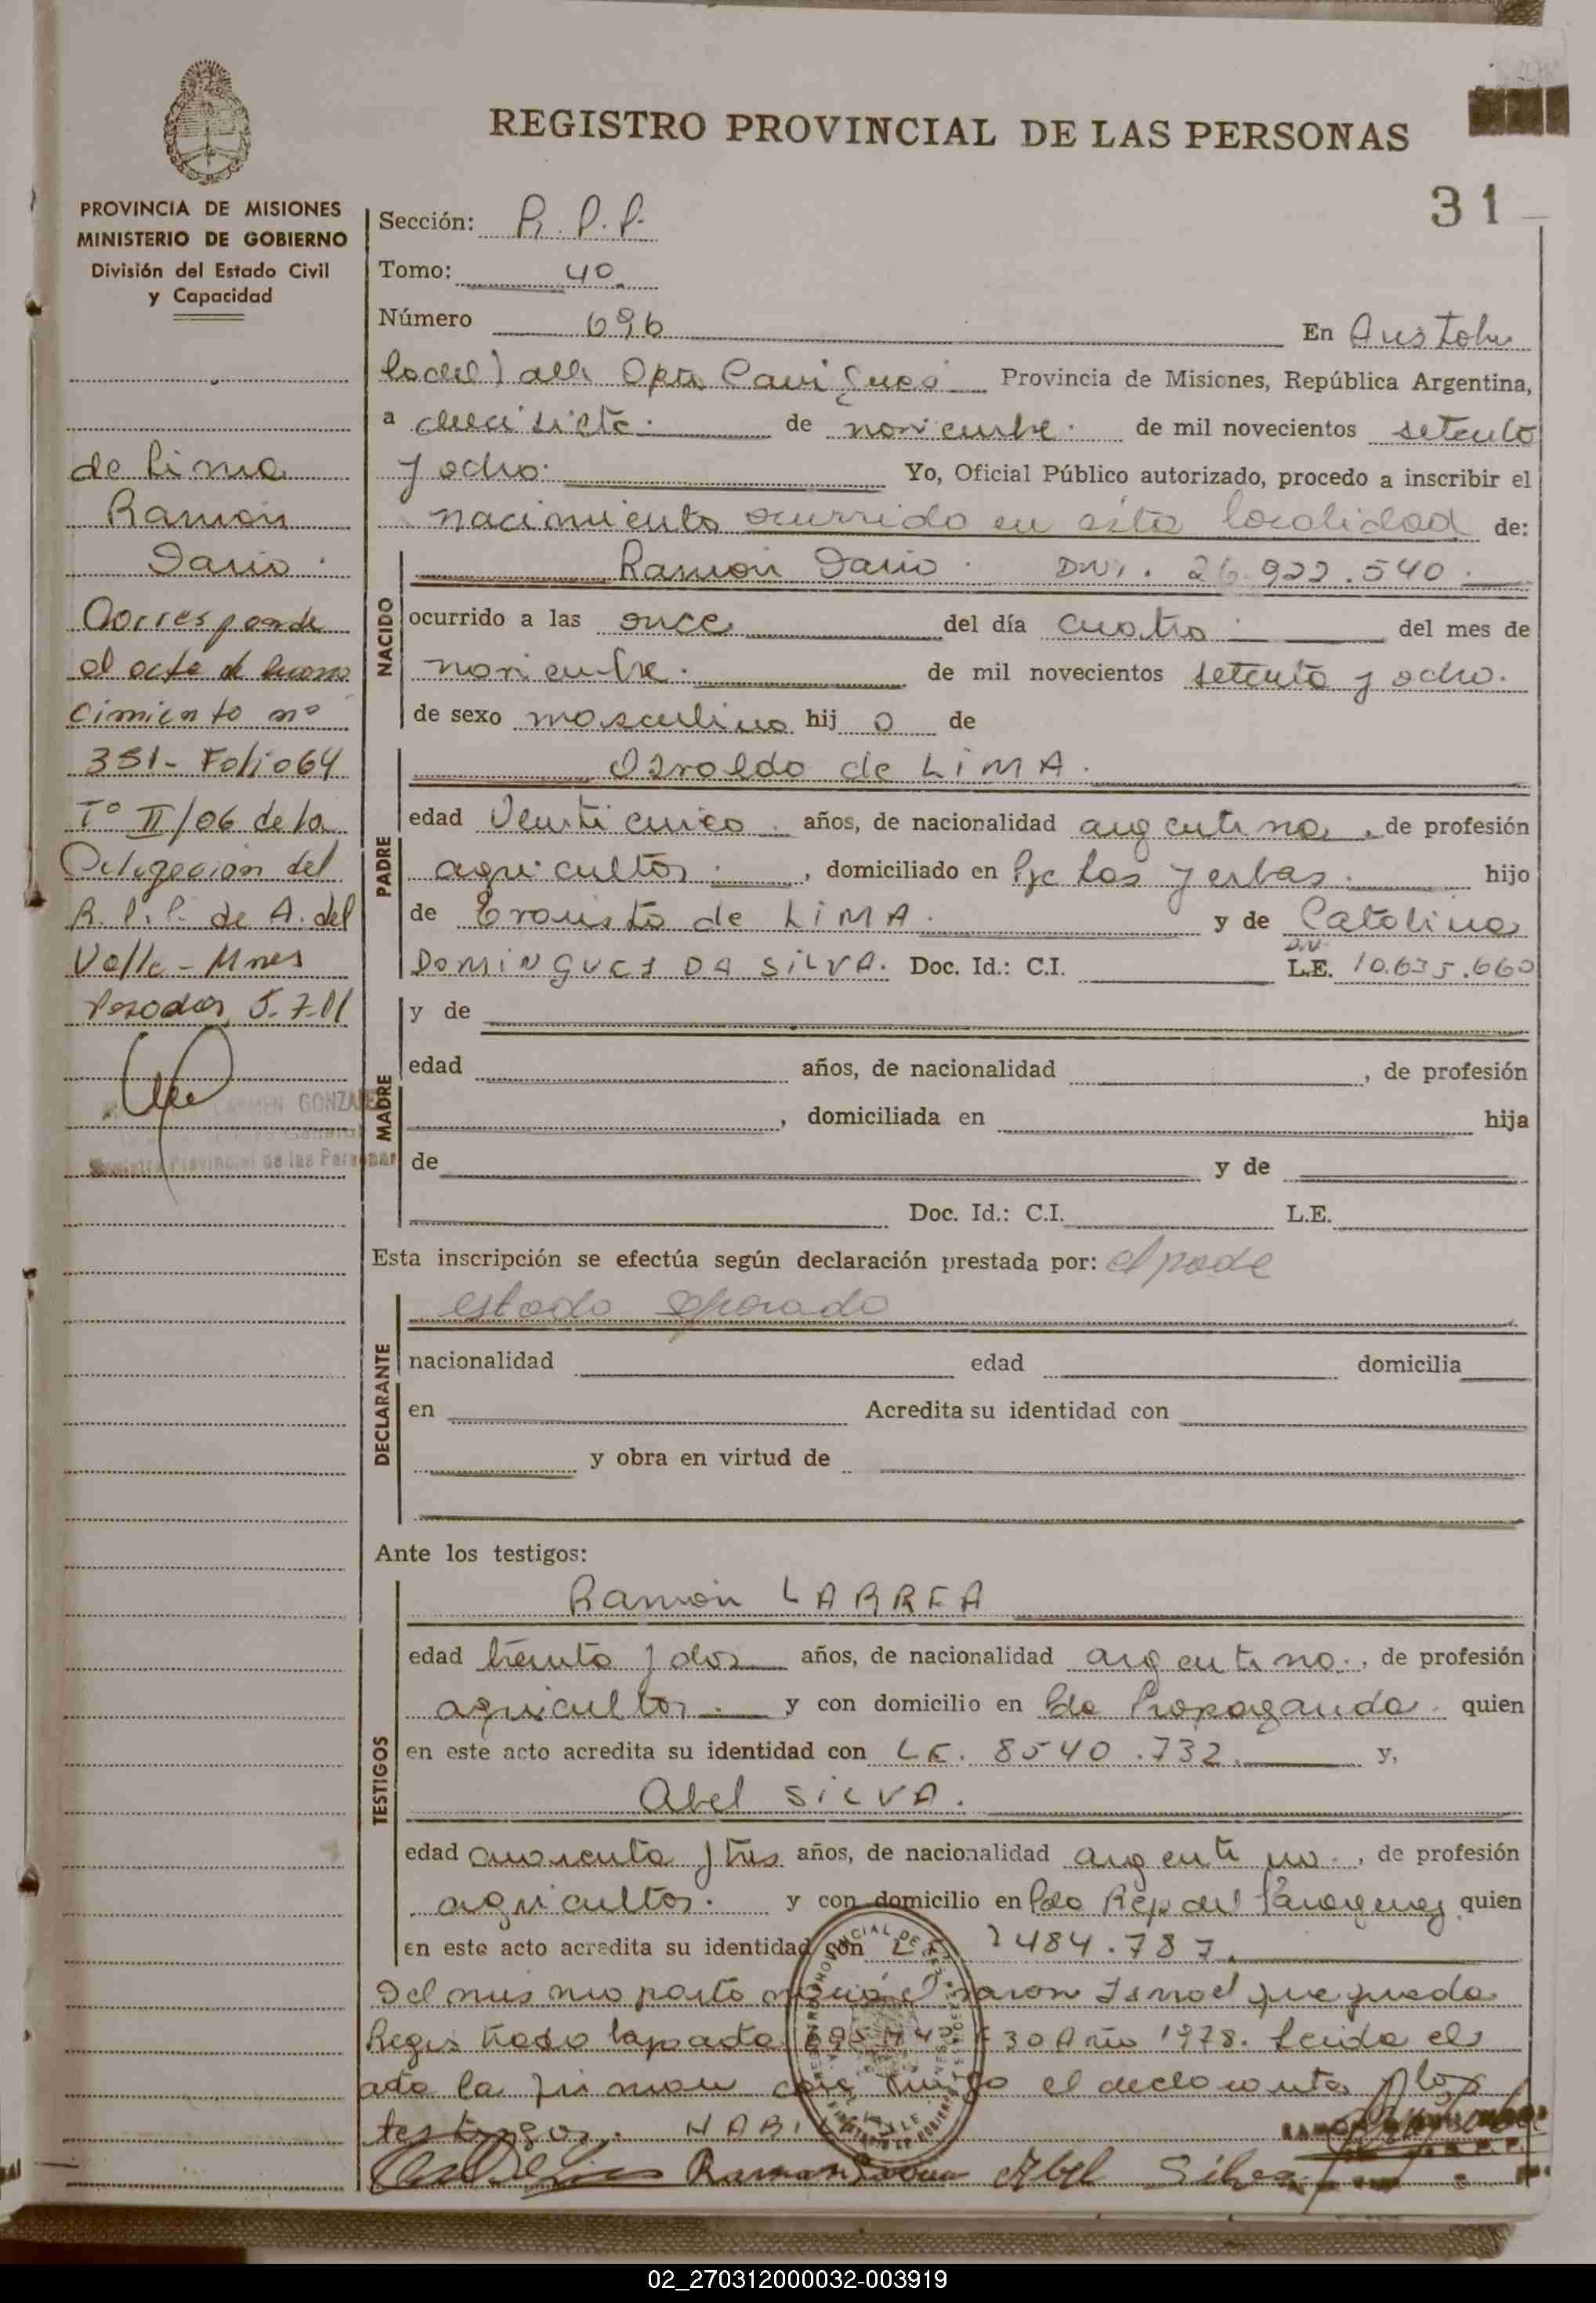 REGISTRO PROVINCIAL DE LAS PERSONAS
31
PROVINCIA DE MISIONES
MINISTERIO DE GOBIERNO
División del Estado Civil
y Capacidad
de Lima
Ramón
Dario.
Corresponde
al acta de
cimiento nº
351- Folio 64
Tº II/06 de la
Delegación del
R.P.P. de A. del
Valle - Mnes
Posadas, 5-7-
CARMEN GONZALEZ
Registro Provincial de las Personas
Sección: R.P.P.
Tomo: 40
Número 696 En Aristobu
lo del Valle Dpto Cainguas Provincia de Misiones, República Argentina,
a diecisiete. de noviembre. de mil novecientos setenta
y ocho. Yo, Oficial Público autorizado, procedo a inscribir el
nacimiento ocurrido en esta localidad de:
NACIDO
Ramón Dario. DNI. 26.922.540.
ocurrido a las once del día cuatro del mes de
noviembre. de mil novecientos setenta y ocho.
de sexo masculino hij o de
PADRE
Osvaldo de LIMA.
edad Veinticinco. años, de nacionalidad argentina, de profesión
agricultor., domiciliado en Pje Las Yerbas. hijo
de Evaristo de LIMA. y de Catalina
DOMINGUES DA SILVA. Doc. Id.: C.I. L.E. DNI 10.635.660
MADRE
y de
edad años, de nacionalidad , de profesión
, domiciliada en hija
de y de
Doc. Id.: C.I. L.E.
Esta inscripción se efectúa según declaración prestada por: el padre
DECLARANTE
estado separado
nacionalidad edad domicilia
en Acredita su identidad con
y obra en virtud de
Ante los testigos:
TESTIGOS
Ramón LARREA
edad treinta y dos años, de nacionalidad argentino., de profesión
agricultor. y con domicilio en Pdo Propaganda. quien
en este acto acredita su identidad con L.E. 8540.732. y,
Abel SILVA.
edad cuarenta y tres años, de nacionalidad argentino., de profesión
agricultor. y con domicilio en Pdo Rep del Paraguay quien
en este acto acredita su identidad con L.E. 7484.787.
Del mismo parto nació el varon Ismael que queda
Registrado bajo acta 695 30 Año 1978. Leida el
acta la firman conmigo el declarante y los
testigos.
Abel Silva
02_270312000032-003919